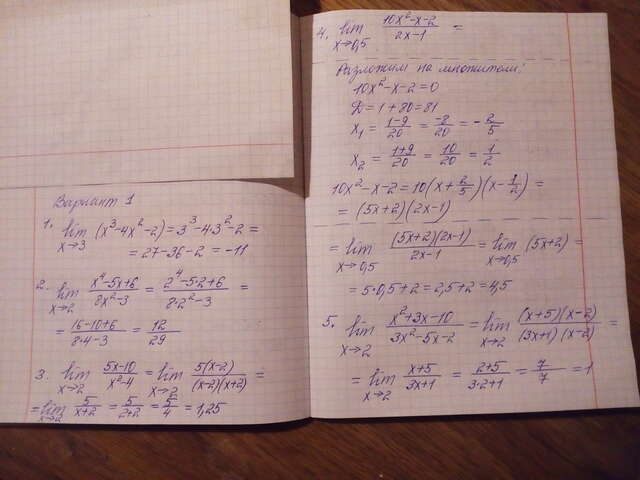 Вариант 1
1. lim x→3 (x³-4x²-2) = 3³-4·3²-2 =
= 27-36-2 = -11
2. lim x→2 (x⁴-5x+6)/(8x²-3) = (2⁴-5·2+6)/(8·2²-3) =
= (16-10+6)/(8·4-3) = 12/29
3. lim x→2 (5x-10)/(x²-4) = lim x→2 5(x-2)/((x-2)(x+2)) =
= lim x→2 5/(x+2) = 5/(2+2) = 5/4 = 1,25
4. lim x→0,5 (10x²-x-2)/(2x-1) =
Разложим на множители:
10x²-x-2=0
D=1+80=81
x₁ = (1-9)/20 = -8/20 = -2/5
x₂ = (1+9)/20 = 10/20 = 1/2
10x²-x-2=10(x+2/5)(x-1/2) =
= (5x+2)(2x-1)
= lim x→0,5 (5x+2)(2x-1)/(2x-1) = lim x→0,5 (5x+2) =
= 5·0,5+2=2,5+2=4,5
5. lim x→2 (x²+3x-10)/(3x²-5x-2) = lim x→2 (x+5)(x-2)/((3x+1)(x-2)) =
= lim x→2 (x+5)/(3x+1) = (2+5)/(3·2+1) = 7/7 = 1